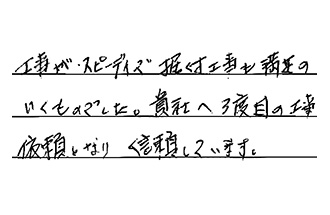 工事が、スピーディで 掘くす工事も 満足の
いくものでした。貴社へ3度目の工事
依頼となり く信頼しています。